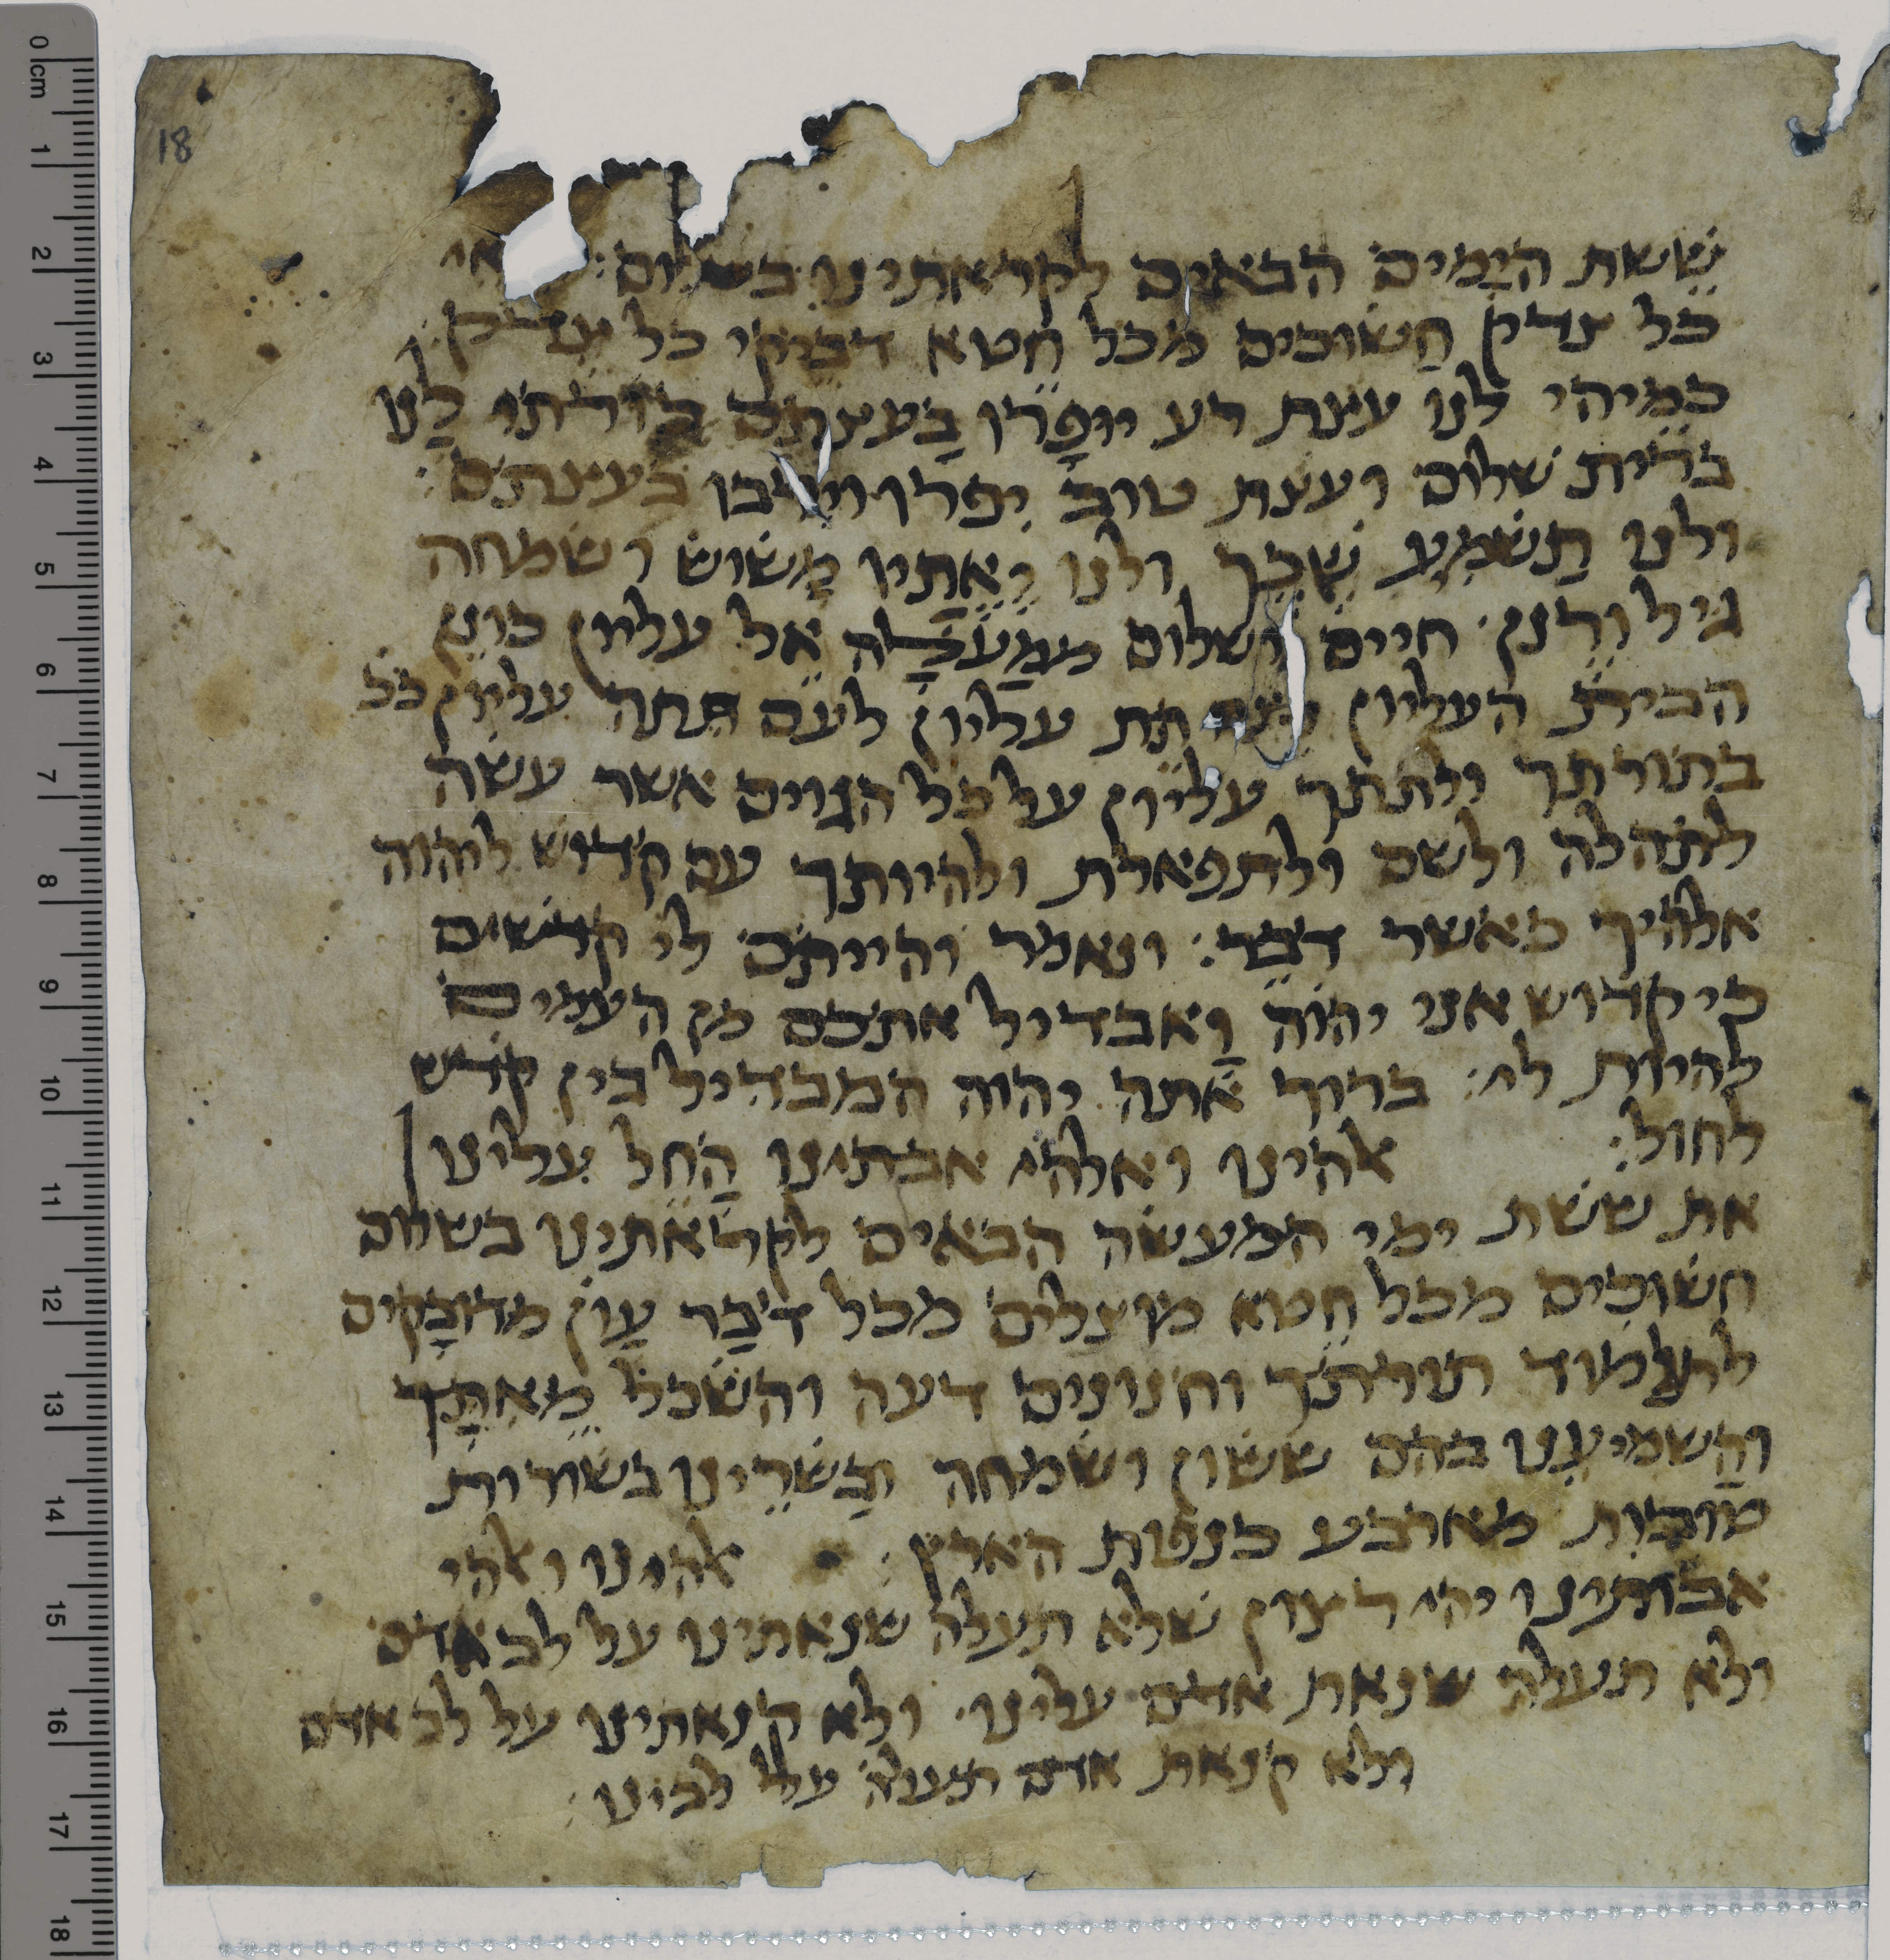 18
ששת הימים הבאים לקראתינו בשלום: אי
כל צדק חשוכים מכל חטא דביקי כל צדק:
כמיהי לנו עצת רע יופרו בעצתם כורתי לנו
ברית שלום ועצת טוב יפרו וירבו בעיצתם:
ולנו תשמע שכך ולנו יאתיו משוש ושמחה
גיל ורנן חיים ושלום ממעלה אל עליון כונן
הבית העליון עליון לעם אתה עליון ככ
בתורתך ולתתך עליון על כל הגוים אשר עשה
לתהלה ולשם ולתפארת ולהיותך עם קדוש ליהוה
אלהיך כאשר דבר: ונאמר והייתם לי קדושים
כי קדוש אני יהוה ואבדיל אתכם מן העמים
להיות לי: ברוך אתה יהוה המבדיל בין קדש
לחול: אלהינו ואלהי אבתינו החל עלינו
את ששת ימי המעשה הבאים לקראתינו בשלום
חשוכים מכל חטא מוצלים מכל דבר עון מדובקים
לתלמוד תורתך וחנונים דעה והשכל מאתך
והשמיענו בהם ששון ושמחה ובשרינו בשורות
טובות מארבע כנפות הארץ: אלהינו ואלהי
אבותינו יהי רצון שלא תעלה שנאתינו על לב אדם
ולא תעלה שנאת אדם עלינו. ולא קנאתינו על לב אדם
ולא קנאת אדם תעלה על לבינו: